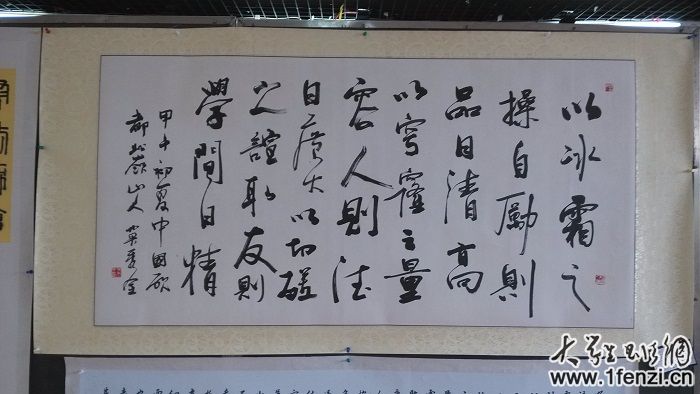 以冰霜之
操自勵則
品日清高
以穹窿之量
容人則德
日廣大以切磋
之誼取友則
學問日精
甲午初夏中國硯
都山人
www.1fenzi.cn